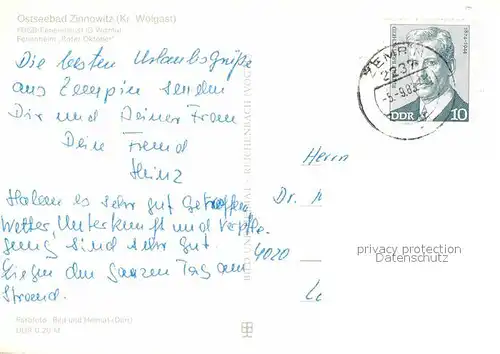 Ostseebad Zinnowitz (Kr. Wolgast)
FDGB-Erholungsheim IG Wismut
Ferienheim „Roter Oktober“
Die besten Urlaubsgrüße
aus Zempin senden
Dir und Deiner Frau
Dein Freund
Heinz
Haben es sehr gut getroffen,
Wetter, Unterkunft und Verpfle-
gung sind sehr gut.
Liegen den ganzen Tag am
Strand.
BILD UND HEIMAT REICHENBACH (VOGTL)
ZEMPIN
2237
-5.-9.83
DDR 10
1874-1944
Herrn
Dr.
4020
privacy protection
Datenschutz
Farbfoto: Bild und Heimat (Dörr)